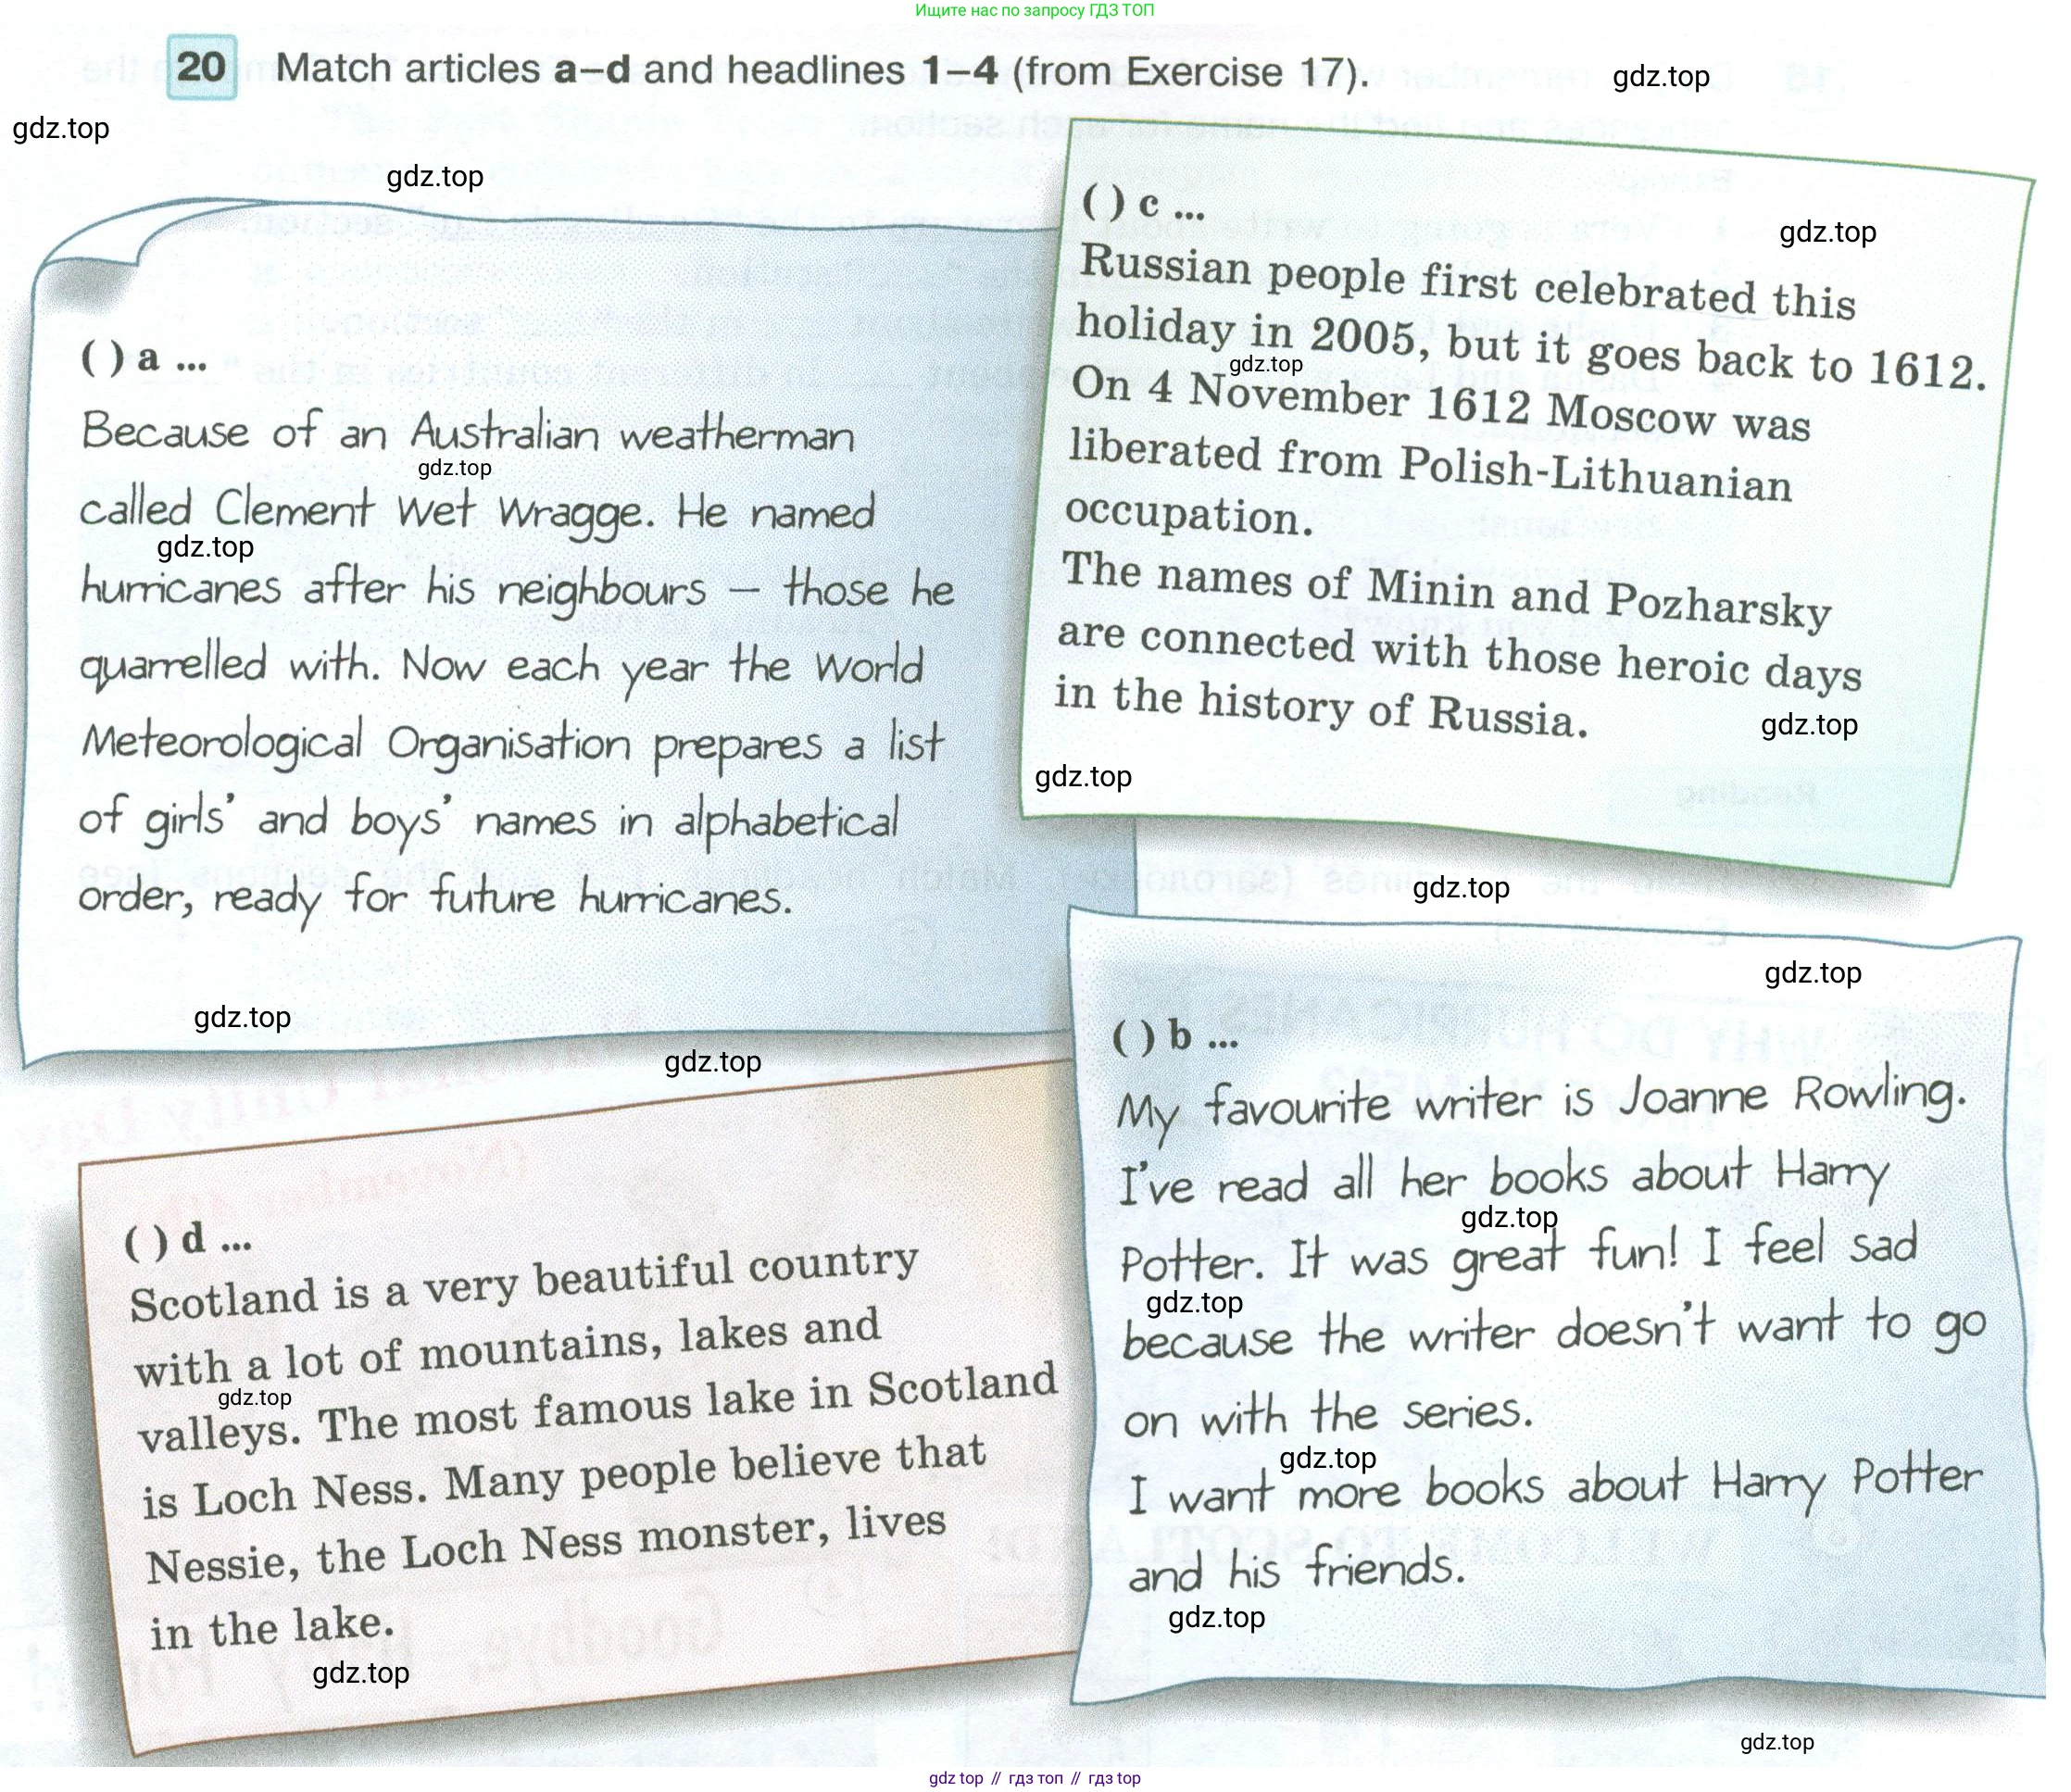 Ищите нас по запросу ГДЗ ТОП
20 Match articles a–d and headlines 1–4 (from Exercise 17).
gdz.top
gdz.top
gdz.top
( ) a ...
Because of an Australian weatherman
gdz.top
called Clement Wet Wragge. He named
gdz.top
hurricanes after his neighbours – those he
quarrelled with. Now each year the World
Meteorological Organisation prepares a list
of girls' and boys' names in alphabetical
order, ready for future hurricanes.
gdz.top
gdz.top
( ) c ...
gdz.top
Russian people first celebrated this
holiday in 2005, but it goes back to 1612.
gdz.top
On 4 November 1612 Moscow was
liberated from Polish-Lithuanian
occupation.
The names of Minin and Pozharsky
are connected with those heroic days
in the history of Russia.
gdz.top
gdz.top
gdz.top
gdz.top
( ) b ...
My favourite writer is Joanne Rowling.
I've read all her books about Harry
gdz.top
Potter. It was great fun! I feel sad
gdz.top
because the writer doesn't want to go
on with the series.
gdz.top
I want more books about Harry Potter
and his friends.
gdz.top
( ) d ...
Scotland is a very beautiful country
with a lot of mountains, lakes and
gdz.top
valleys. The most famous lake in Scotland
is Loch Ness. Many people believe that
Nessie, the Loch Ness monster, lives
in the lake.
gdz.top
gdz.top
gdz top // гдз топ // гдз top